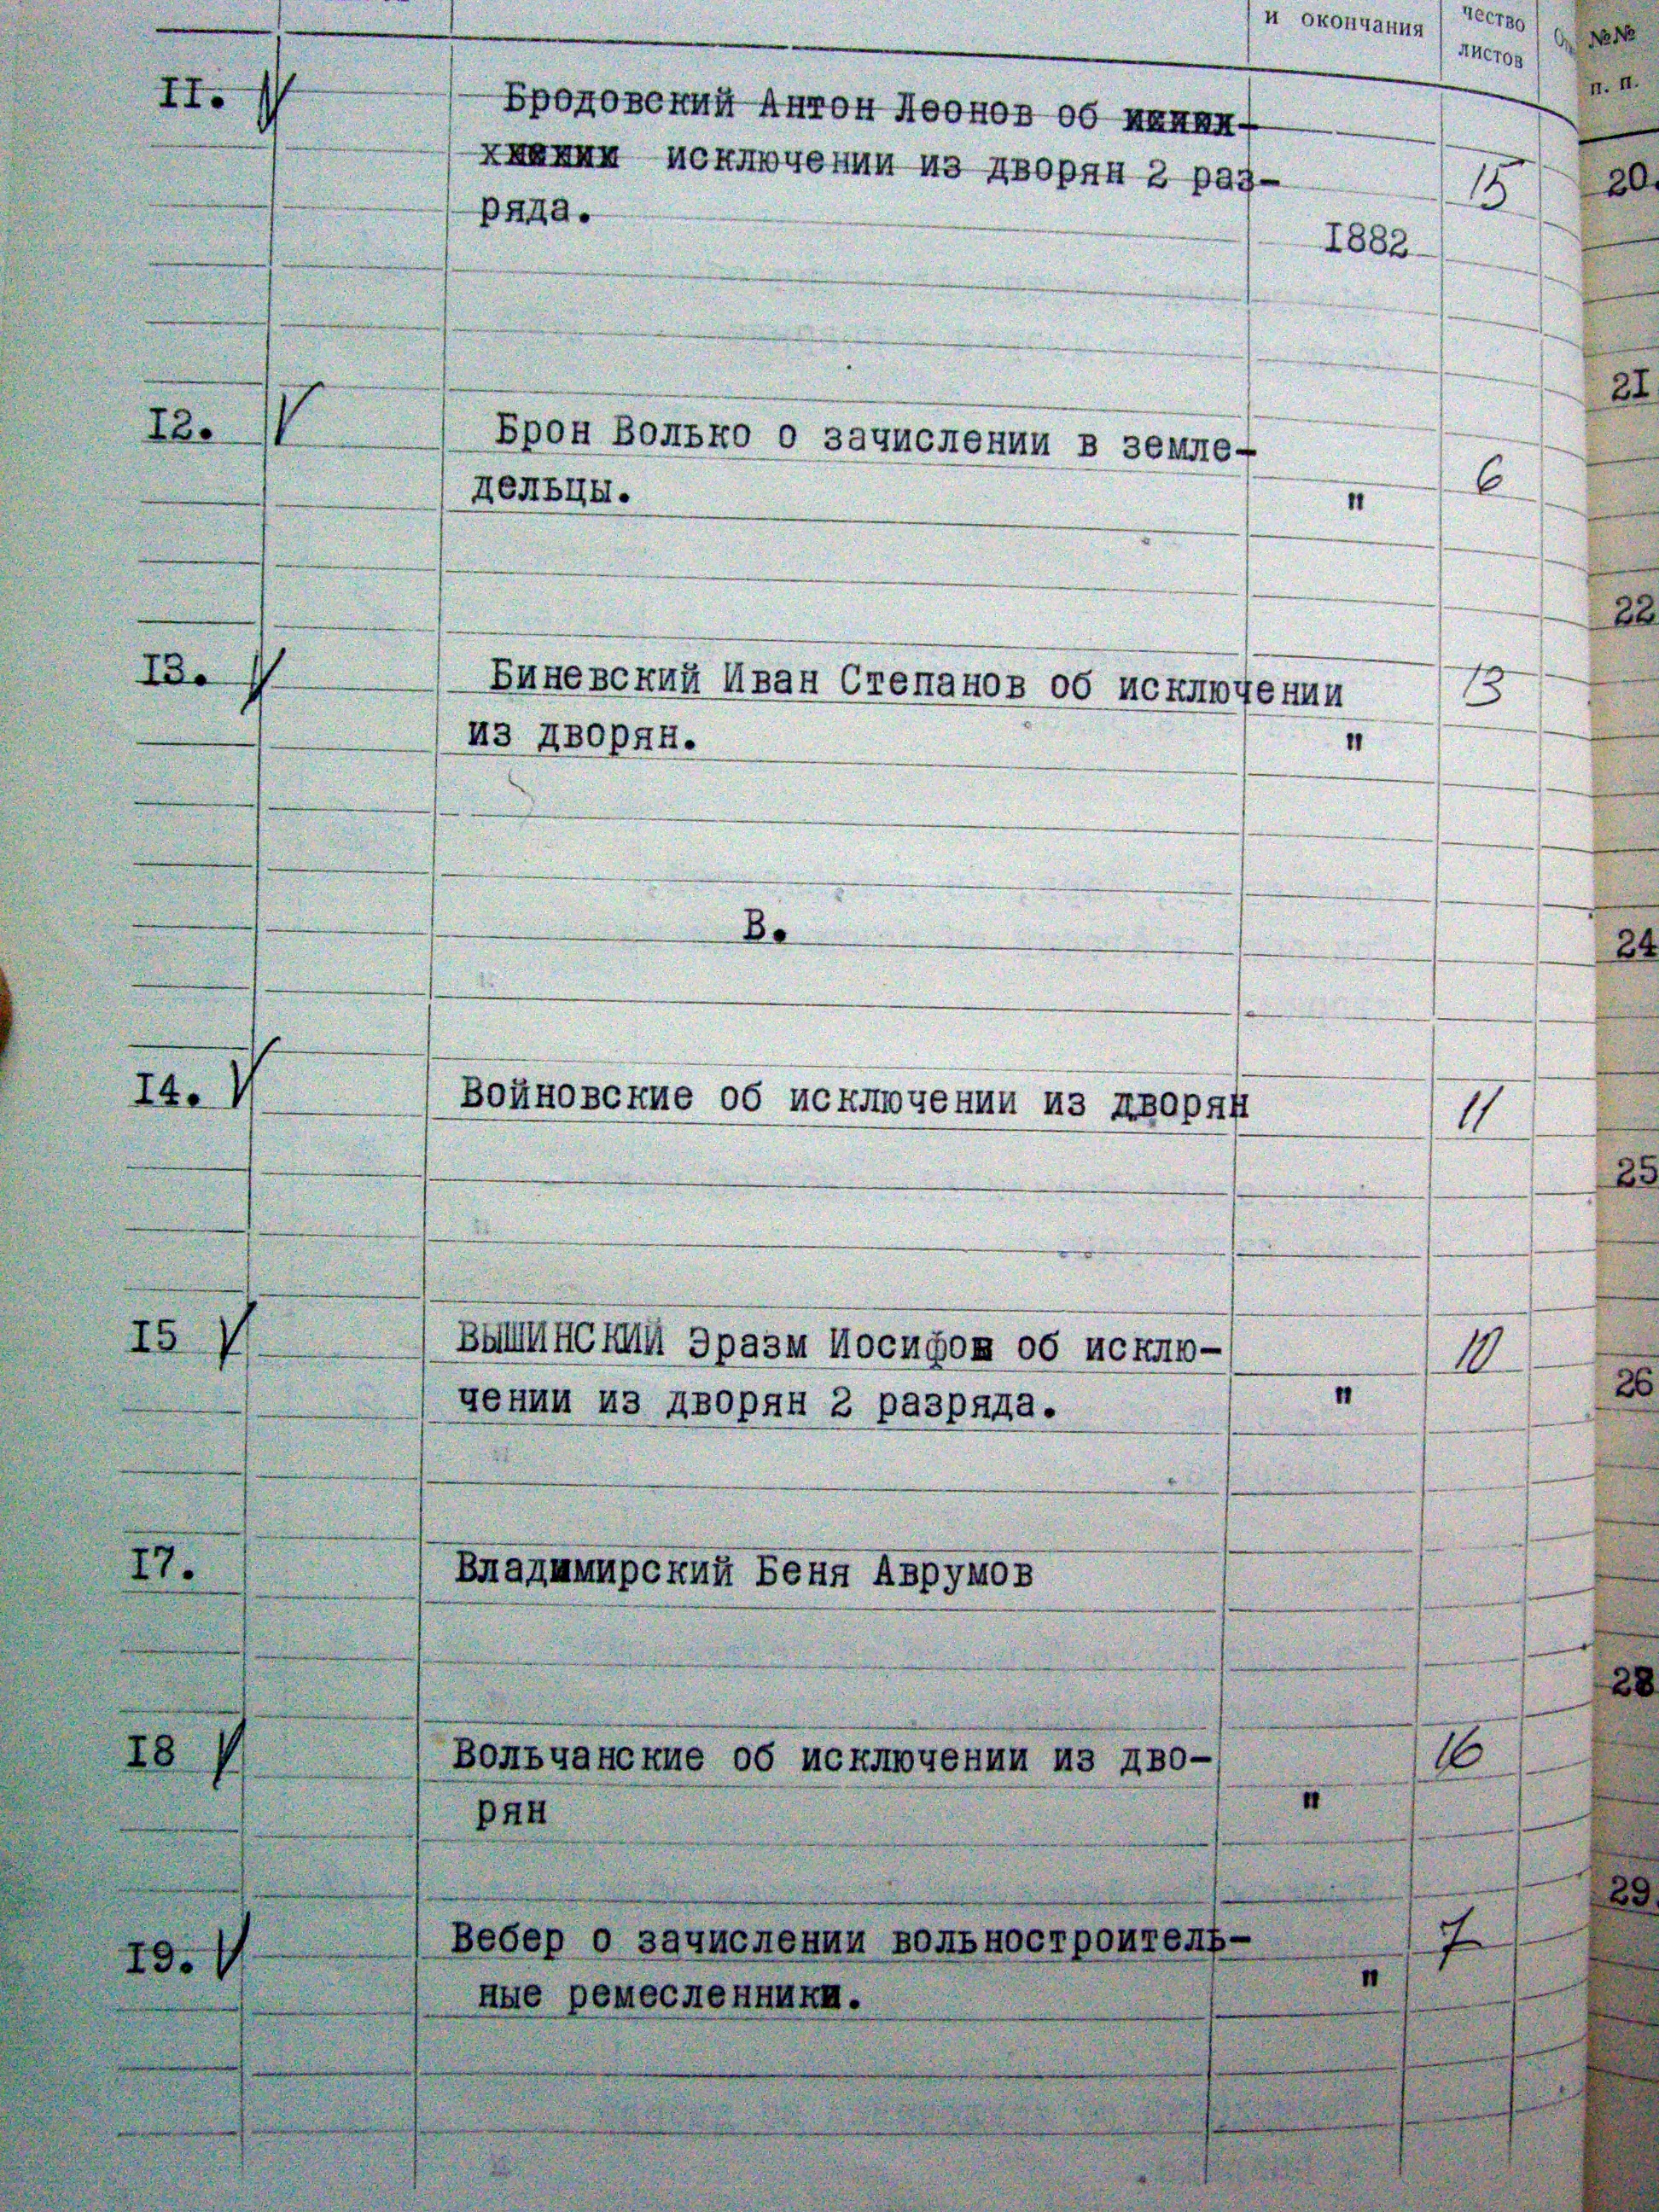 и окончания
чество
листов
№№
п. п.
II. V Бродовский Антон Леонов об
исключении из дворян 2 раз-
ряда.
15
1882
20.
21
I2. V Брон Волько о зачислении в земле-
дельцы.
" 6
22
I3. V Биневский Иван Степанов об исключении 13
из дворян. "
В.
24
I4. V Войновские об исключении из дворян 11
25
I5 V Вышинский Эразм Иосифов об исклю- 10
чении из дворян 2 разряда. "
26
I7. Владимирский Беня Аврумов
28
I8 V Вольчанские об исключении из дво- 16
рян "
29.
I9. V Вебер о зачислении вольностроитель- 7
ные ремесленники. "